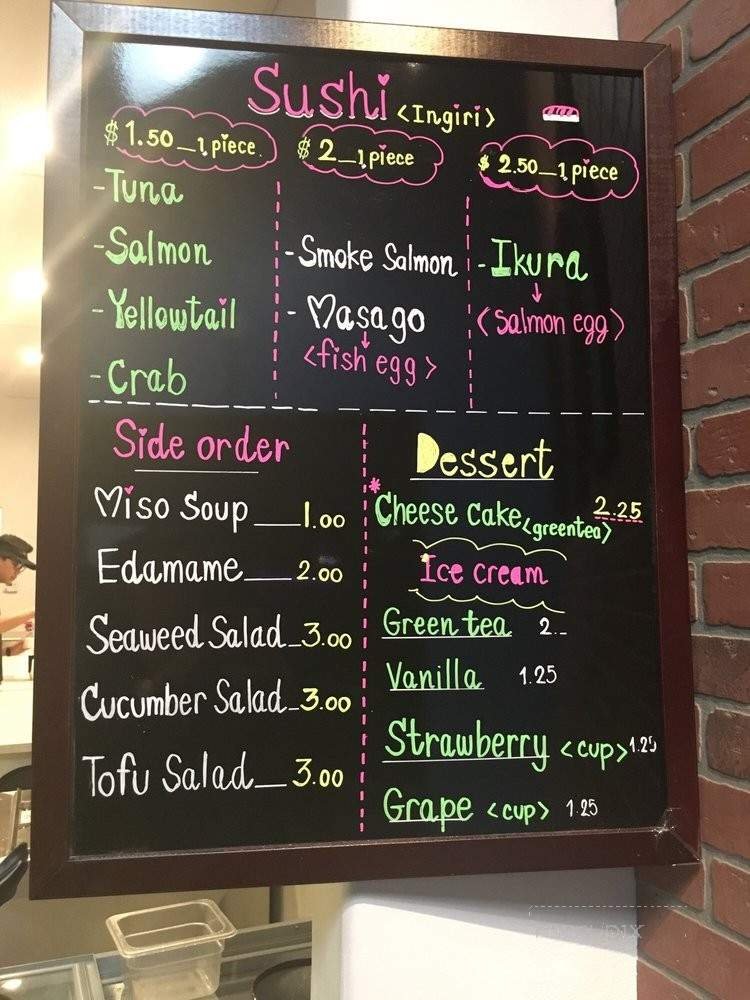 Sushi <Ingiri>
$1.50_1 piece.
-Tuna
-Salmon
-Yellowtail
-Crab
$2_1 piece
-Smoke Salmon
-Masago
<fish egg>
$2.50_1 piece
-Ikura
<salmon egg>
Side order
Miso Soup __1.00
Edamame__ 2.00
Seaweed Salad_3.00
Cucumber Salad_3.00
Tofu Salad__3.00
Dessert
*Cheese cake<greentea> 2.25
Ice cream
Green tea 2._
Vanilla 1.25
Strawberry <cup>1.25
Grape <cup> 1.25